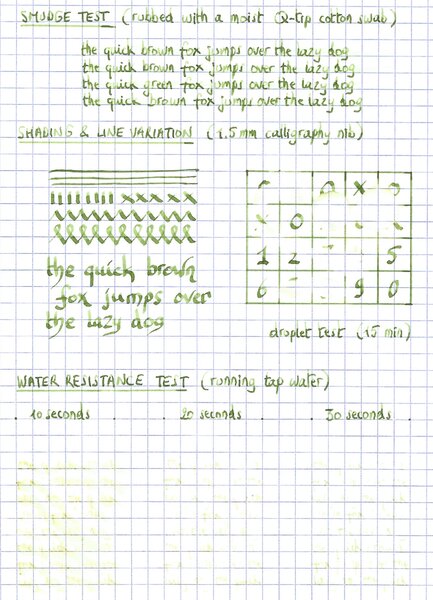 SMUDGE TEST (rubbed with a moist Q-tip cotton swab)
the quick brown fox jumps over the lazy dog
the quick brown fox jumps over the lazy dog
the quick green fox jumps over the lazy dog
the quick brown fox jumps over the lazy dog
SHADING & LINE VARIATION (1.5mm calligraphy nib)
X
0
1 2 5
6 9 0
the quick brown
fox jumps over
the lazy dog
droplet test (15 min)
WATER RESISTANCE TEST (running tap water)
10 seconds 20 seconds 30 seconds